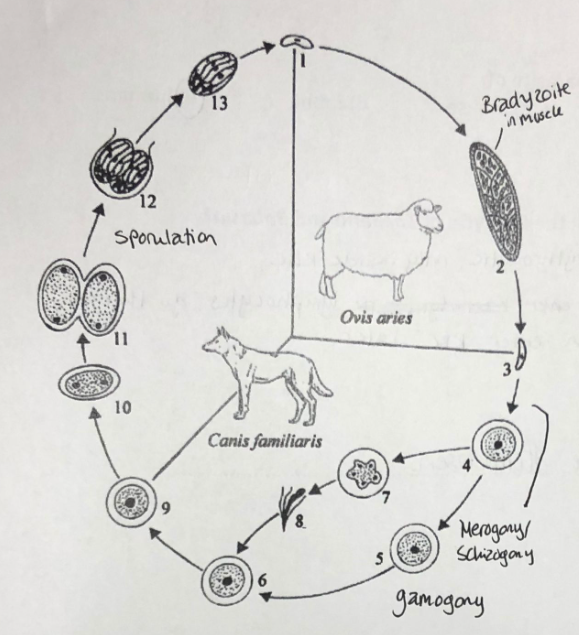 1
13
Bradyzoite
in muscle
12
Sporulation
2
Ovis aries
11
3
10
Canis familiaris
4
7
9
8
Merogony/
Schizogony
5
6
gamogony